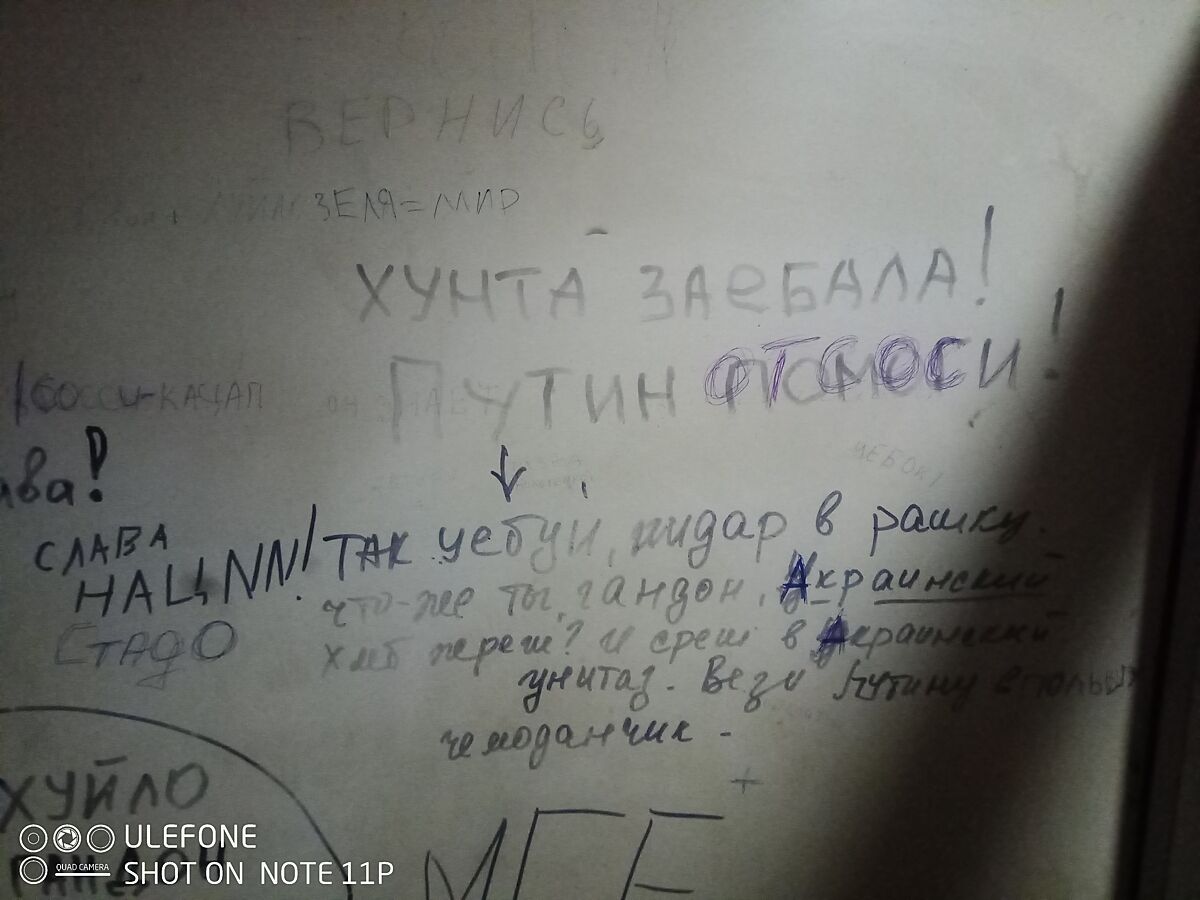 ВЕРНИСЬ
ЗЕЛЯ = МИР
ХУНТА ЗАеБАЛА!
ПУТИН ОТСОСИ!
КАЦАП
ава!
СЛАВА
НАЦИИ!
СТАДО
ТАК уебуй, пидар в рашку.
что-же ты, гандон, Акраинский
хлеб жереш? и среш в Акраинский
унитаз. Вези Путину
чемоданчик.
ХУЙЛО
ГАНДОН
ULEFONE
QUAD CAMERA
SHOT ON NOTE 11P